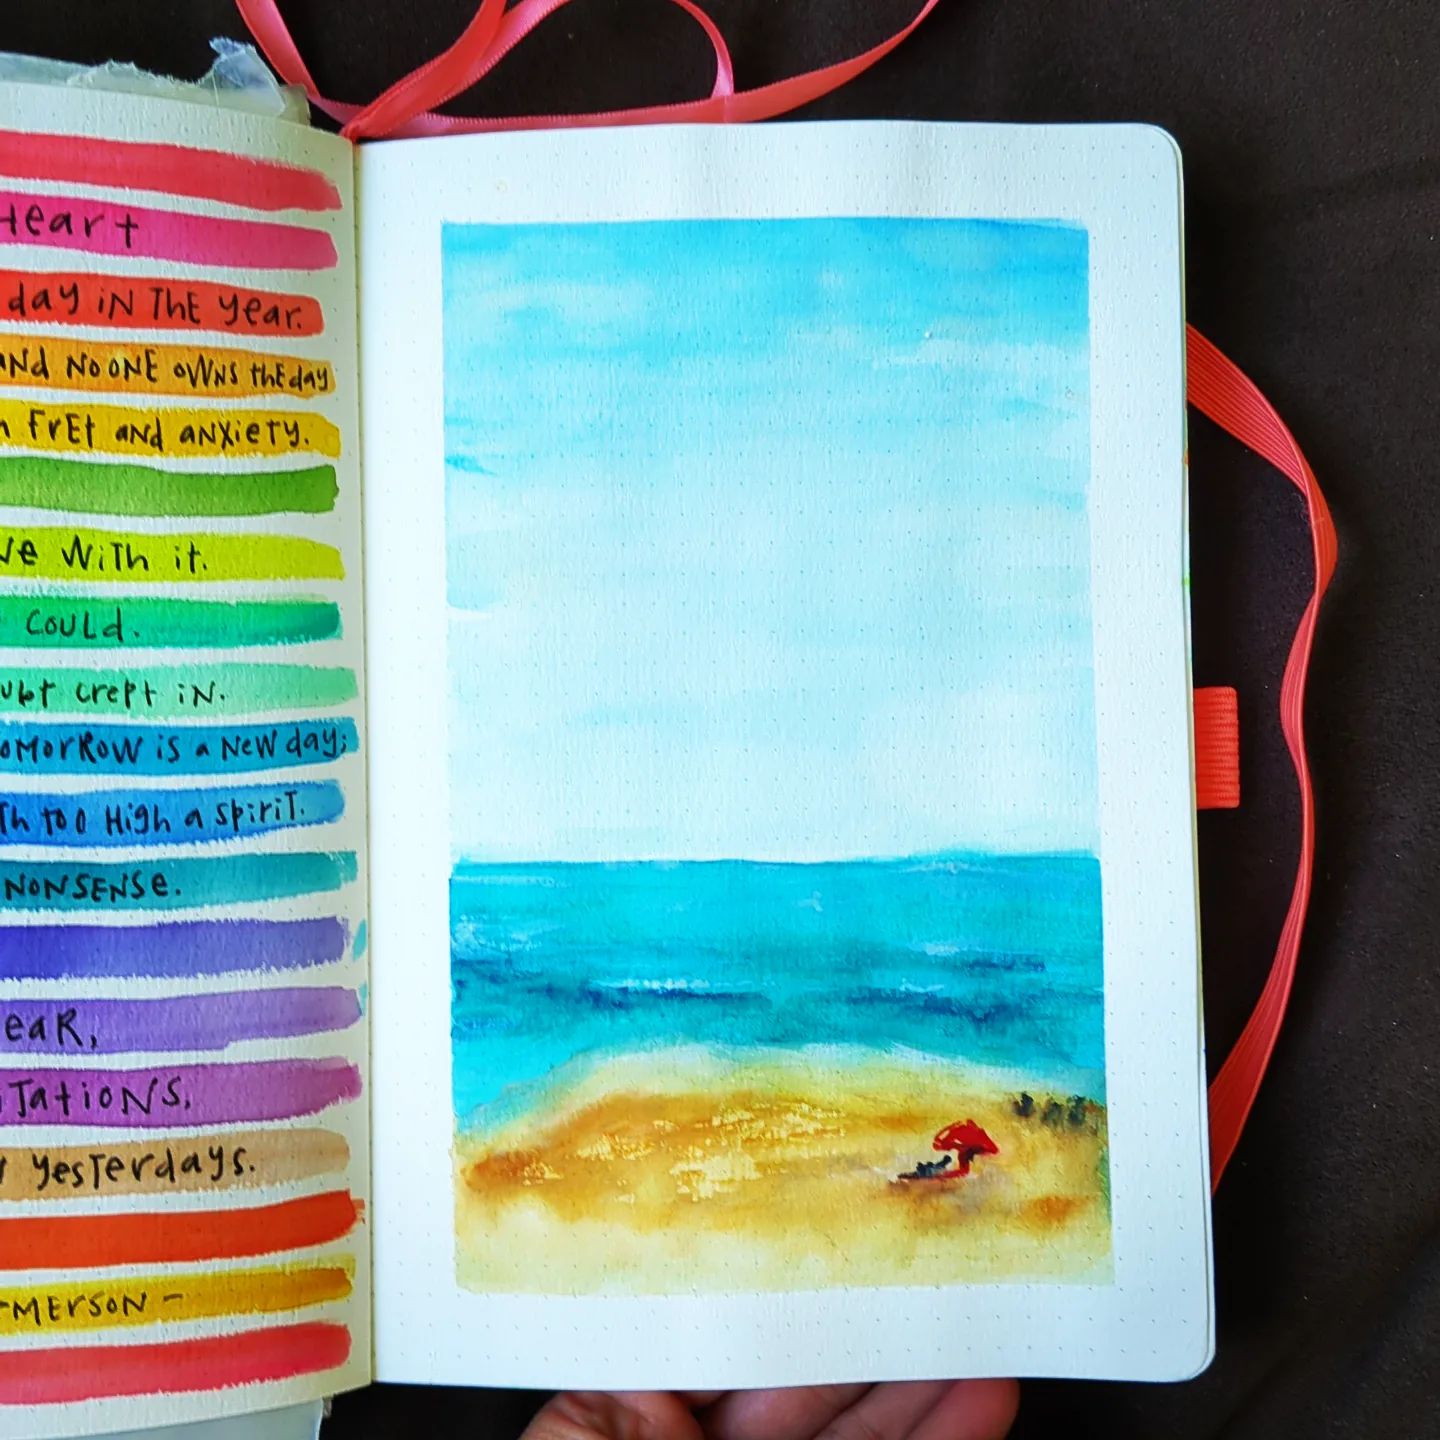 Heart
day in the year.
and no one owns the day
fret and anxiety.
with it.
could.
crept in.
Tomorrow is a new day;
too high a spirit.
nonsense.
yesterdays.